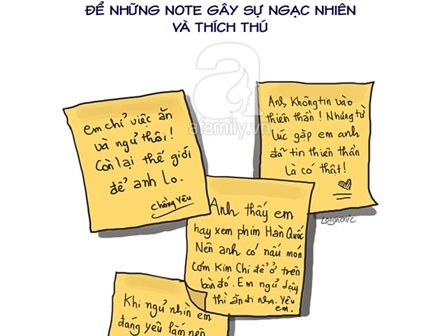 ĐỂ NHỮNG NOTE GÂY SỰ NGẠC NHIÊN
VÀ THÍCH THÚ
afamily.vn
Em chỉ việc ăn
và ngủ thôi!
Còn lại thế giới
để anh lo.
Chồng yêu
Anh không tin vào
thiên thần! Nhưng từ
lúc gặp em anh
đã tin thiên thần
là có thật!
Anh thấy em
hay xem phim Hàn Quốc
Nên anh có nấu món
Cơm Kim Chi để ở trên
bàn đó. Em ngủ dậy
thì ăn đi nha. Yêu
em.
Khi ngủ nhìn em
đáng yêu lắm nên